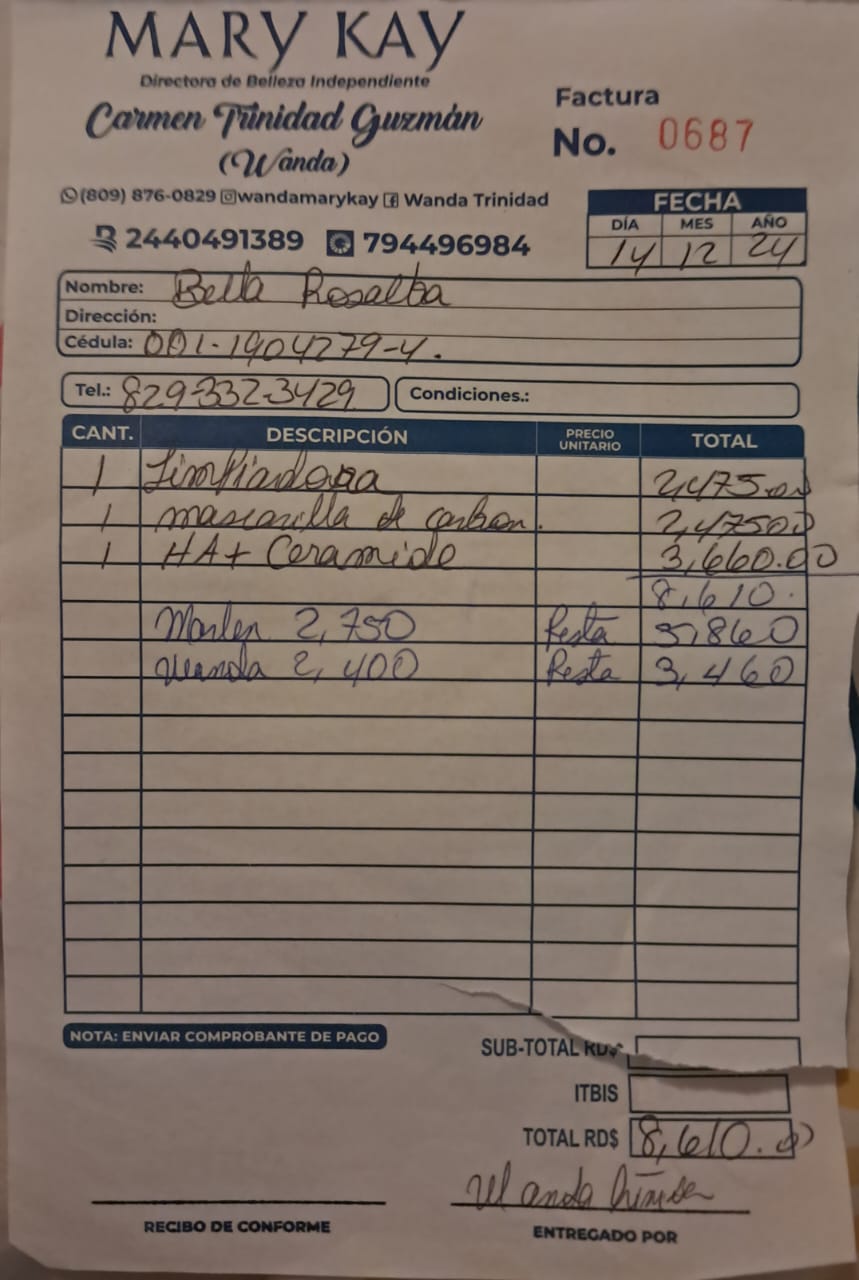 MARY KAY
Directora de Belleza Independiente
Carmen Trinidad Guzmán
(Wanda)
Factura
No. 0687
(809) 876-0829 wandamarykay Wanda Trinidad
2440491389 794496984
FECHA
DÍA MES AÑO
14 12 24
Nombre: Bella Rosalba
Dirección:
Cédula: 001-1904279-4.
Tel.: 829-332-3429 Condiciones.:
CANT. DESCRIPCIÓN PRECIO UNITARIO TOTAL
1 Limpiadora 2,475.00
1 mascarilla de carbon. 2,47500
1 HA+ Ceramide 3,660.00
8,610.
Marlen 2,750 Resta 5,860
Wanda 2,400 Resta 3,460
NOTA: ENVIAR COMPROBANTE DE PAGO
SUB-TOTAL RD$
ITBIS
TOTAL RD$ 8,610.00
Wanda
RECIBO DE CONFORME
ENTREGADO POR